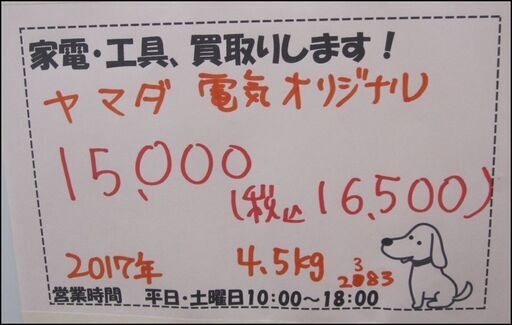 家電・工具、買取りします！
ヤマダ 電気オリジナル
15,000
(税込 16,500)
2017年 4.5kg
営業時間 平日・土曜日10:00～18:00